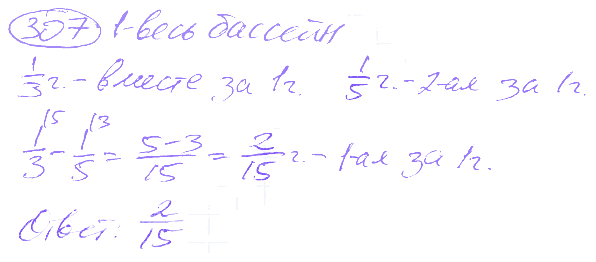 307 1-весь бассейн
1/3 г. - вместе за 1г. 1/5 г. - 2-ая за 1г.
1/3 ⁵ - 1/5 ³ = 5-3/15 = 2/15 г. - 1-ая за 1г.
Ответ: 2/15